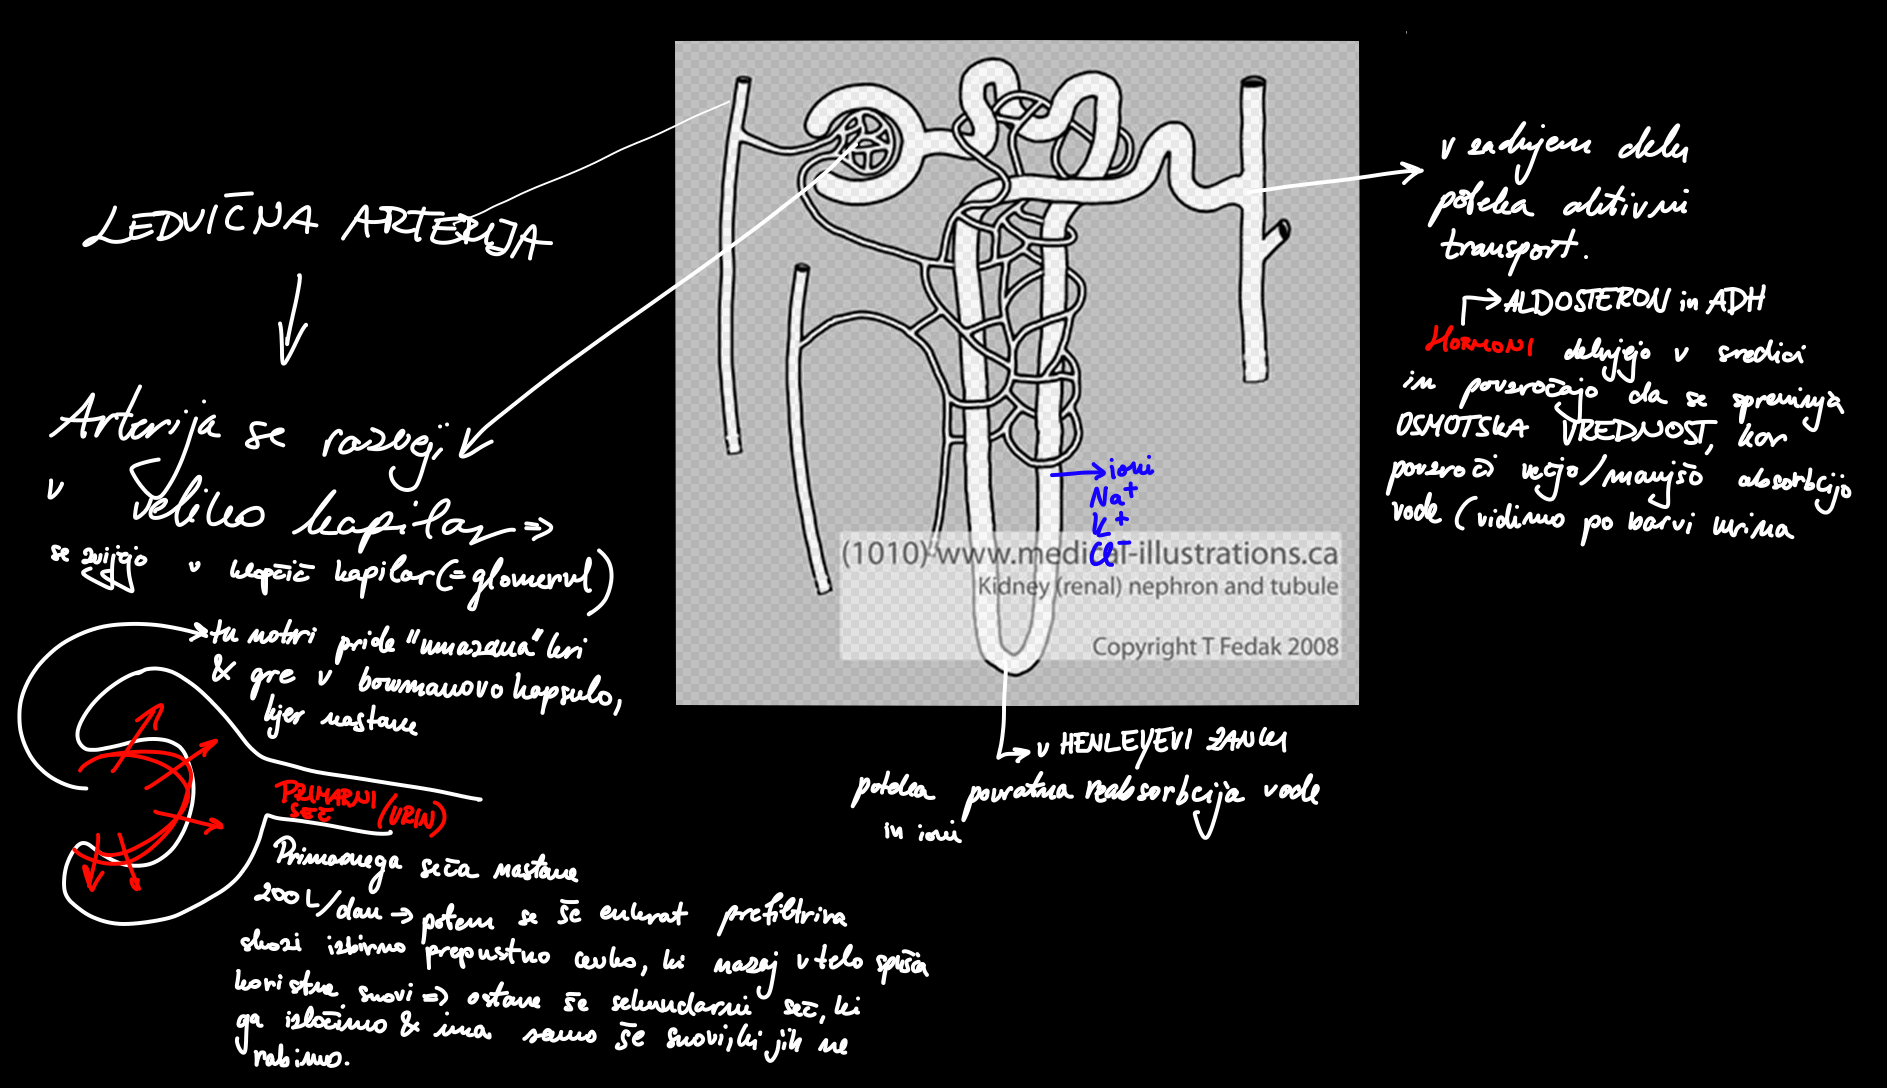 LEDVIČNA ARTERIJA
Arterija se razveji
v veliko kapilar =>
se zvijejo v klopčič kapilar (= glomerul)
tu notri pride "umazana" kri
& gre v bowmanovo kapsulo,
kjer nastane
PRIMARNI
SEČ (URIN)
Primarnega seča nastane
200 L/dan → potem se še enkrat prefiltrira
skozi izbirno prepustno cevko, ki nazaj v telo spušča
koristne snovi => ostane še sekundarni seč, ki
ga izločimo & ima samo še snovi, ki jih ne
rabimo.
ioni
Na+
K+
Cl-
(1010) www.medical-illustrations.ca
Kidney (renal) nephron and tubule
Copyright T Fedak 2008
v HENLEYEVI ZANKI
poteka povratna reabsorbcija vode
in ioni
v zadnjem delu
poteka aktivni
transport.
ALDOSTERON in ADH
HORMONI delujejo v sredici
in povzročajo da se spreminja
OSMOTSKA VREDNOST, kar
povzroči večjo/manjšo absorbcijo
vode (vidimo po barvi urina